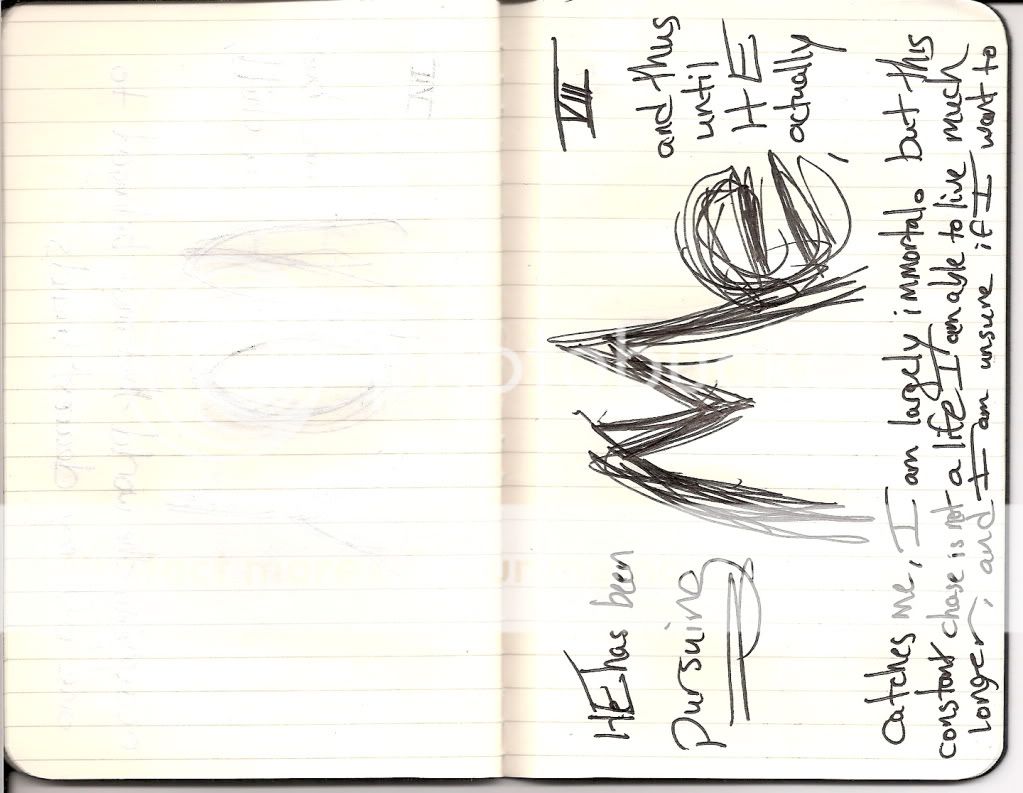 VIII
HE has been
pursuing
Me,
and thus
until
HE
actually
catches me, I am largely immortal. but this
constant chase is not a life I am able to live much
longer, and I am unsure if I want to